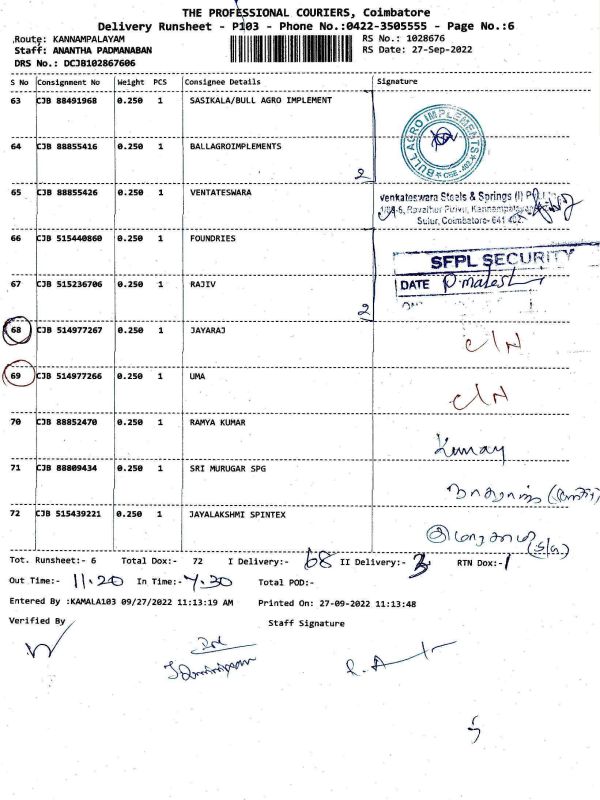 THE PROFESSIONAL COURIERS, Coimbatore
Delivery Runsheet - P103 - Phone No.:0422-3505555 - Page No.:6
Route: KANNAMPALAYAM RS No.: 1028676
Staff: ANANTHA PADMANABAN RS Date: 27-Sep-2022
DRS No.: DCJB102867606
S No Consignment No Weight PCS Consignee Details Signature
63 CJB 88491968 0.250 1 SASIKALA/BULL AGRO IMPLEMENT
BULL AGRO IMPLEMENTS
CBE - 402
64 CJB 88855416 0.250 1 BALLAGROIMPLEMENTS
2
65 CJB 88855426 0.250 1 VENTATESWARA
Venkateswara Steels & Springs (I) P
Sulur, Coimbatore- 641 402.
66 CJB 515440860 0.250 1 FOUNDRIES
SFPL SECURITY
67 CJB 515236706 0.250 1 RAJIV
DATE
2
68 CJB 514977267 0.250 1 JAYARAJ
C/N
69 CJB 514977266 0.250 1 UMA
C/N
70 CJB 88852470 0.250 1 RAMYA KUMAR
Kumar
71 CJB 88809434 0.250 1 SRI MURUGAR SPG
72 CJB 515439221 0.250 1 JAYALAKSHMI SPINTEX
Tot. Runsheet:- 6 Total Dox:- 72 I Delivery:- 68 II Delivery:- 3 RTN Dox:- 1
Out Time:- 11.20 In Time:- 7.30 Total POD:-
Entered By :KAMALA103 09/27/2022 11:13:19 AM Printed On: 27-09-2022 11:13:48
Verified By Staff Signature